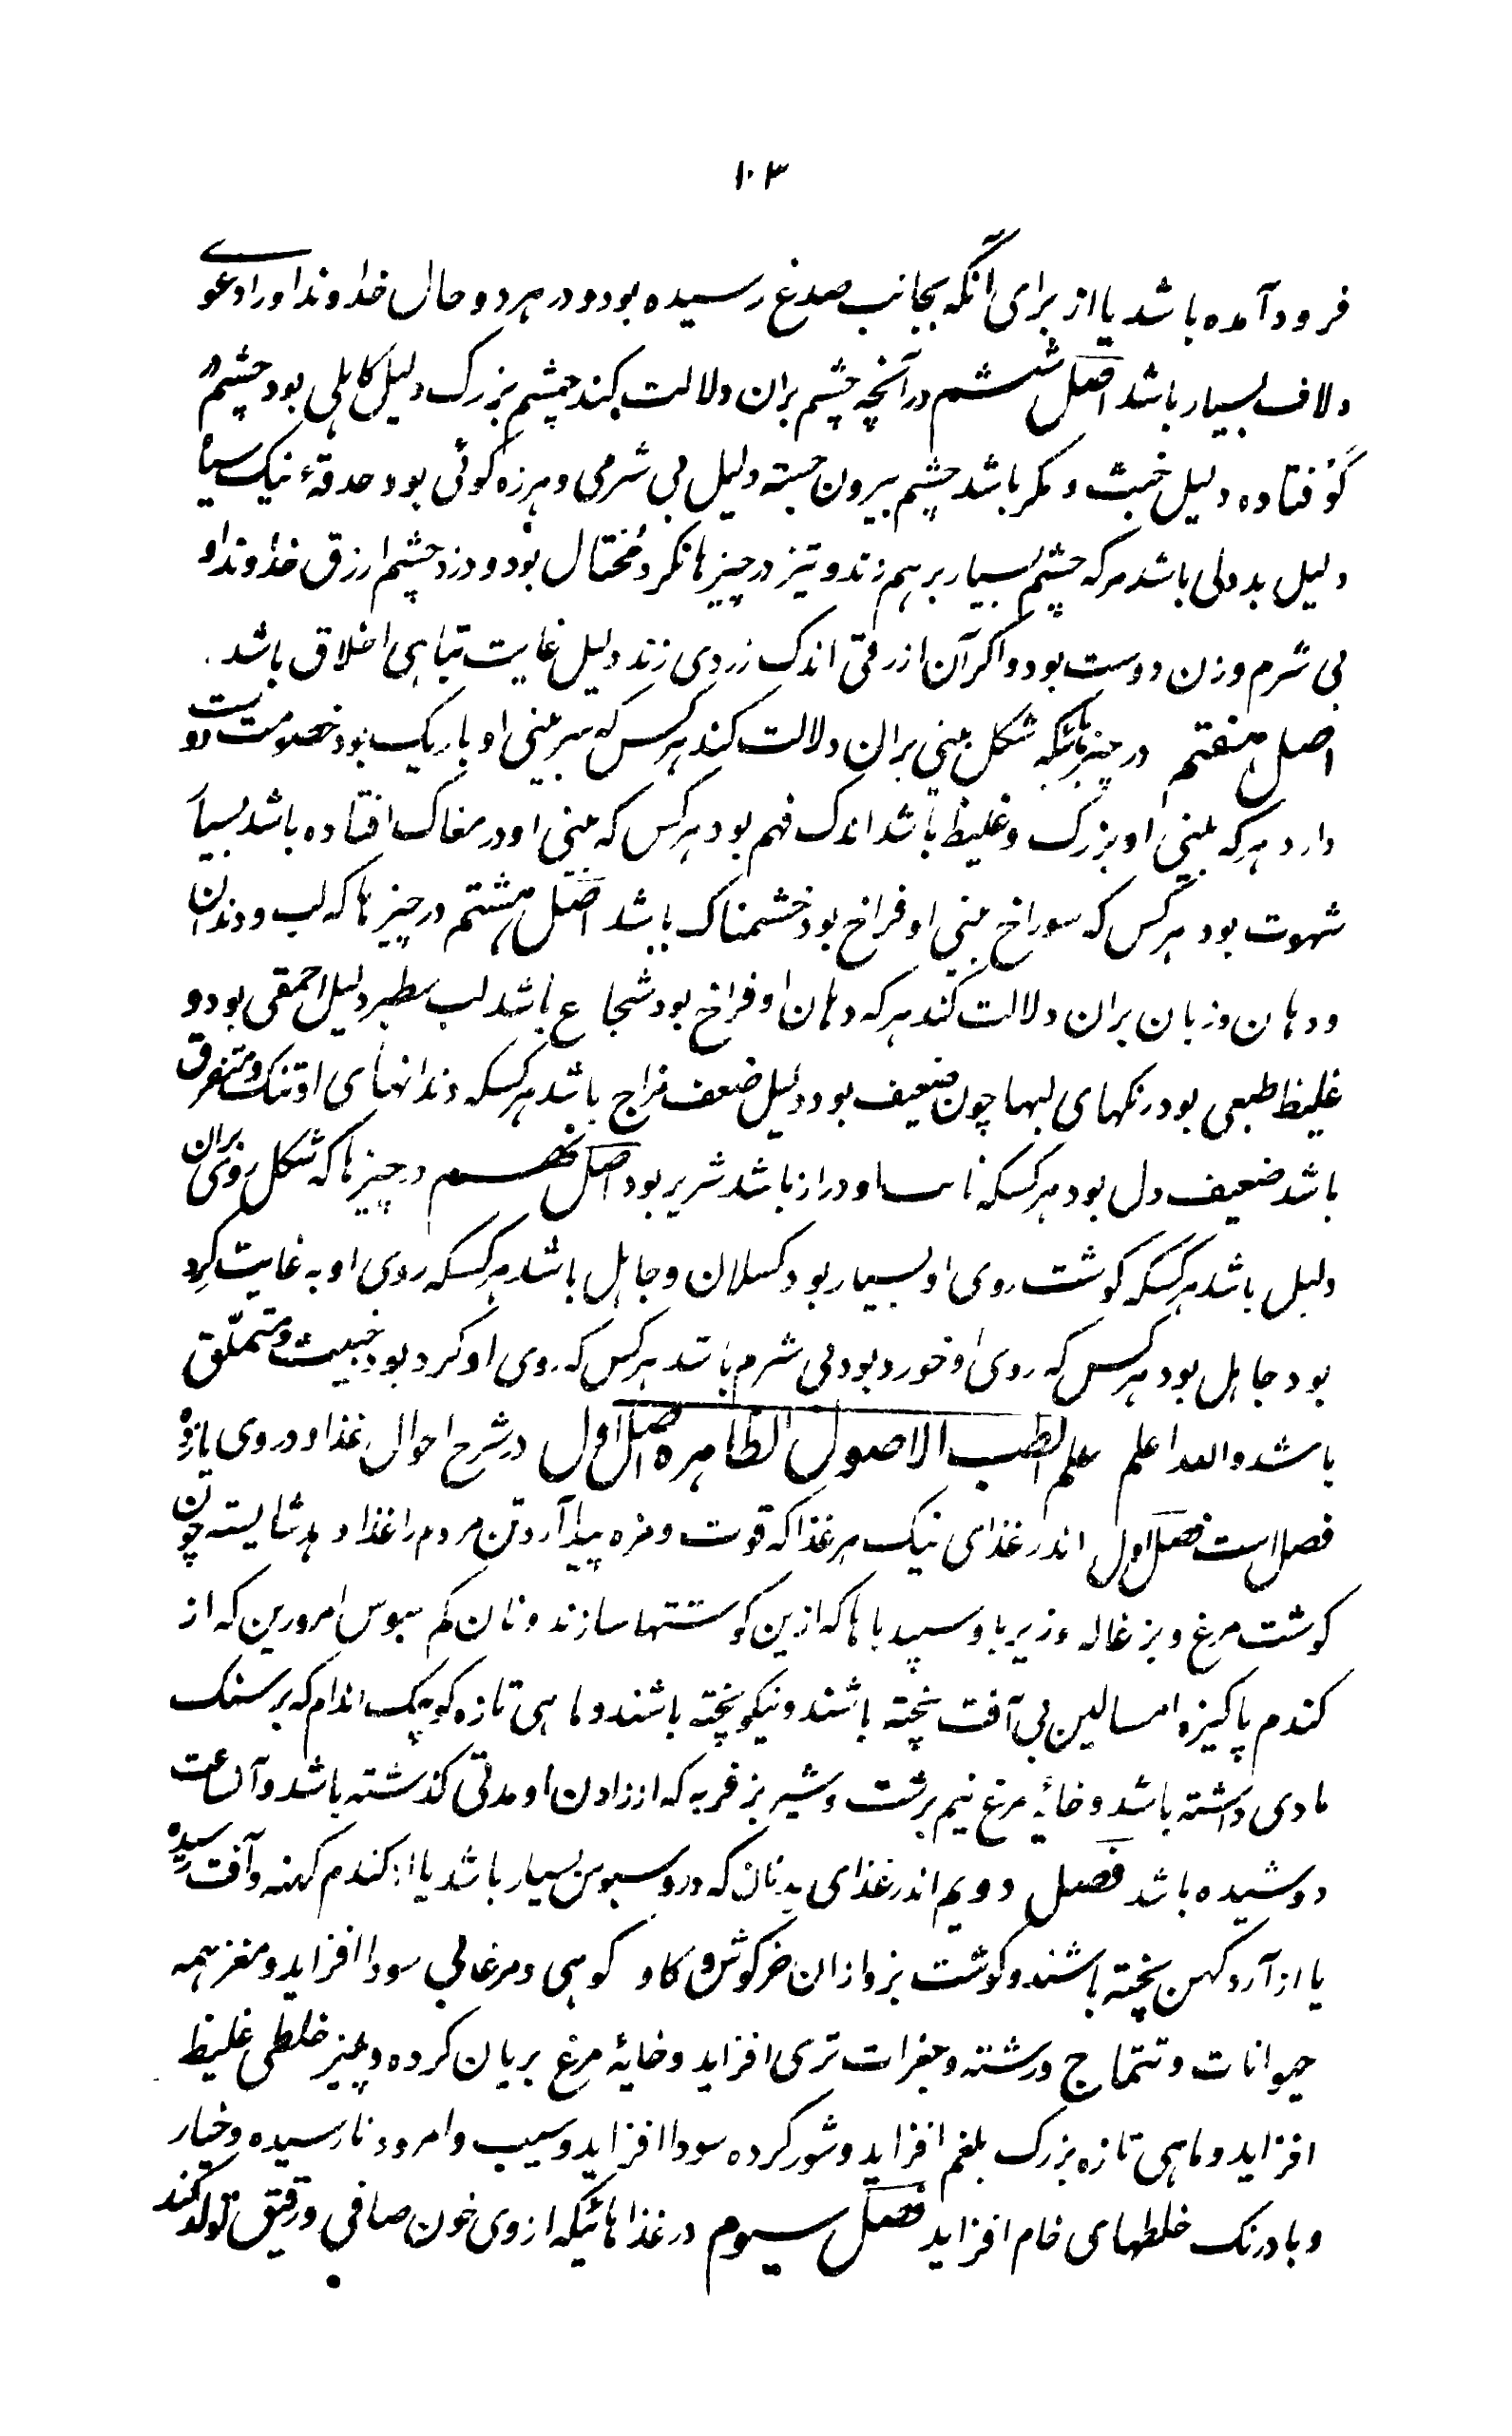 ۱۰۳
فرود آمده باشد یا از برای آنکه بجانب صدغ رسیده بود و در هر دو حال خداوند او را دعوی
و لاف بسیار باشد اصل ششم در آنچه چشم بران دلالت کند چشم بزرگ دلیل کاهلی بود چشم در
گو فتاده دلیل خبث و مکر باشد چشم بیرون جسته دلیل بی شرمی و هرزه گوئی بود حدقهٔ نیک سیاه
دلیل بددلی باشد هرکه چشم بسیار برهم زند و تیز در چیزها نگرد مختال بود و دزد چشم ازرق خداوند او
بی شرم و زن دوست بود و اگر آن ازرقی اندک زردی زند دلیل غایت تباهی اخلاق باشد.
اصل هفتم در چیزهائیکه شکل بینی بران دلالت کند هرکس که سر بینی او باریک بود خصومت دوست
دارد هرکه بینی او بزرگ و غلیظ باشد اندک فهم بود هرکس که بینی او در مغاک افتاده باشد بسیار
شهوت بود هرکس که سوراخ بینی او فراخ بود خشمناک باشد اصل هشتم در چیزها که لب و دندان
و دهان و زبان بران دلالت کند هرکه دهان او فراخ بود شجاع باشد لب سطبر دلیل احمقی بود و
غلیظ طبعی بود رنگهای لبها چون ضعیف بود دلیل ضعف مزاج باشد هرکسکه دندانهای او تنک و متفرق
باشد ضعیف دل بود هرکسکه او دراز باشد شریر بود اصل نهم در چیزها که شکل روی بران
دلیل باشد هرکسکه گوشت روی او بسیار بود کسلان و جاهل باشد هرکسکه روی او به غایت گرد
بود جاهل بود هرکس که روی او خورد بود بی شرم باشد هرکس که روی او گرد بود خبیث و متملّق
باشد والله اعلم علم الطب الاصول الظاهره اصل اول در شرح احوال غذا و در وی یازده
فصل است فصل اول اندر غذای نیک هر غذا که قوت و مزه پیدا آرد تن مردم را غذا دهد شایسته چون
گوشت مرغ و بزغاله و زیربا و سپیدباها که ازین گوشتها سازند و نان کم سبوس امروزین که از
گندم پاکیزه امسالین بی آفت پخته باشند و نیکو پخته باشند و ماهی تازه کوچک اندام که بر سنگ
مادی داشته باشد و خایهٔ مرغ نیم برشت و شیر بز فربه که از زادن او مدتی گذشته باشد و آن ساعت
دوشیده باشد فصل دویم اندر غذای بد نان که درو سبوس بسیار باشد یا از گندم کهنه و آفت رسیده
یا از آرد کهن پخته باشند و گوشت بز و ازان خرگوش و گاو کوهی و مرغابی سودا افزاید و مغز همه
حیوانات و تتماج و رشته و جغرات تری افزاید و خایهٔ مرغ بریان کرده و پنیر خلطی غلیظ
افزاید و ماهی تازه بزرگ بلغم افزاید و شور کرده سودا افزاید و سیب و امرود نارسیده و خیار
و بادرنک خلطهای خام افزاید فصل سیوم در غذاهائیکه از وی خون صافی و رقیق تولد کند